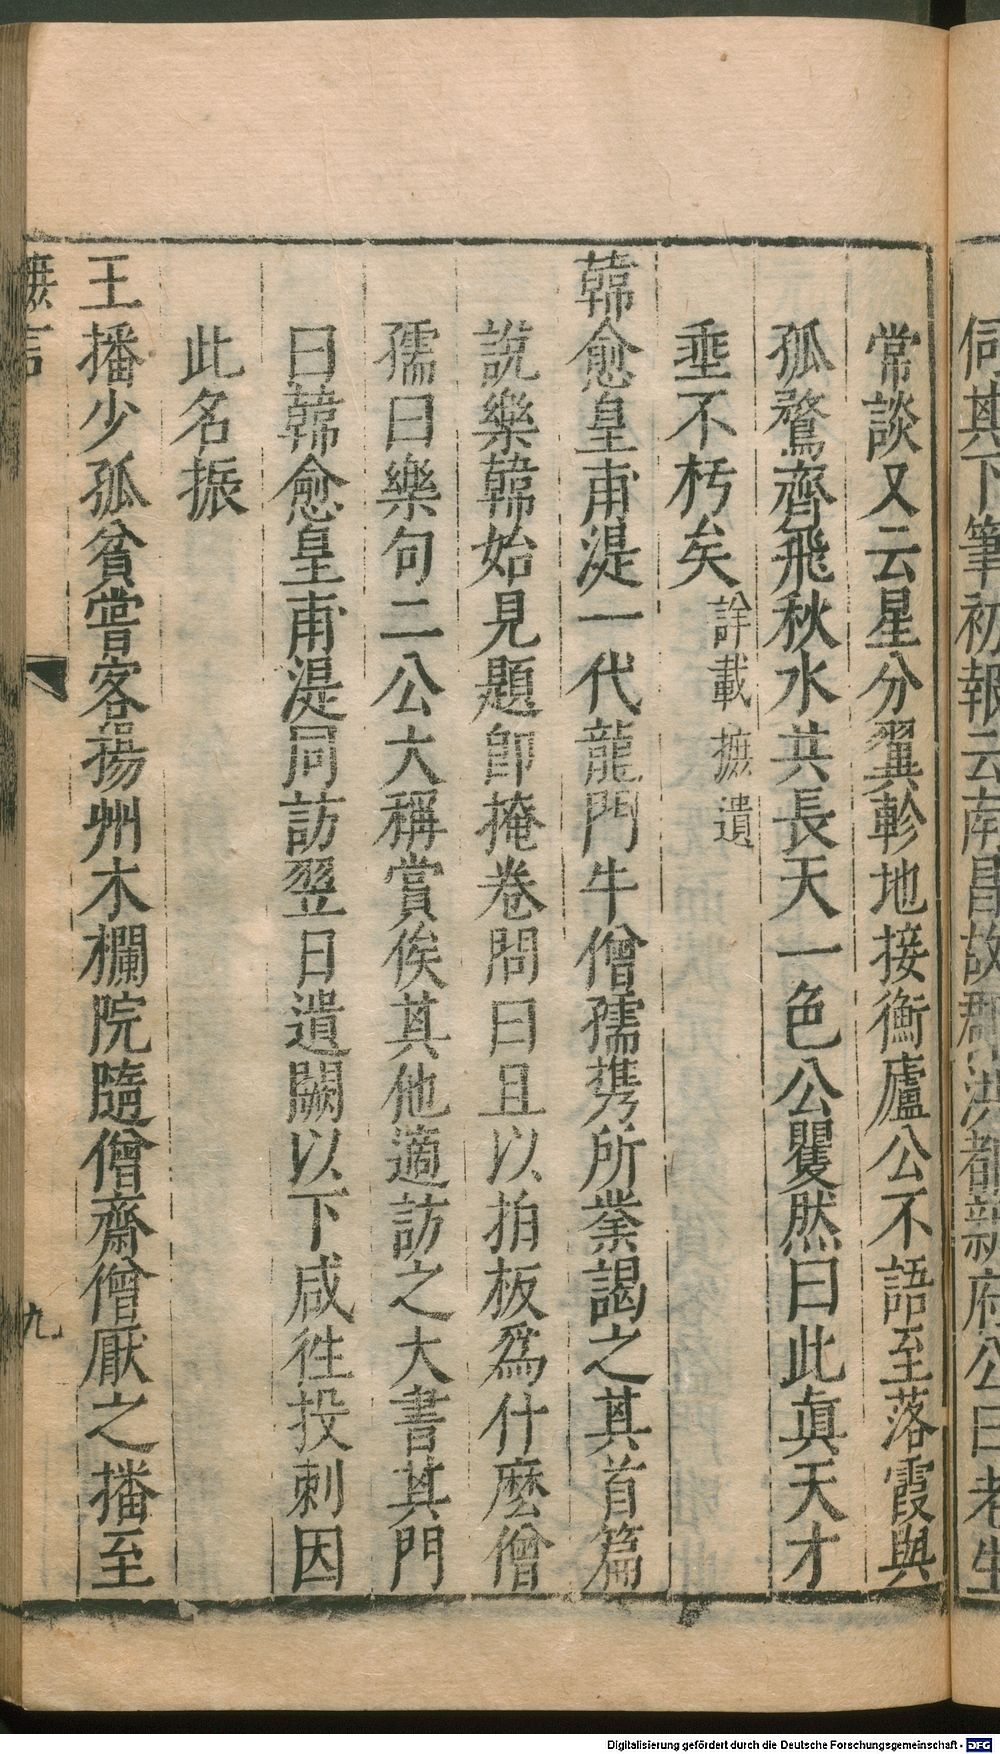 伺其下筆初報云南昌故郡洪都新府公曰老生
常談又云星分翼軫地接衡廬公不語至落霞與
孤鶩齊飛秋水共長天一色公矍然曰此眞天才
埀不朽矣詳載摭遺
韓愈皇甫湜一代龍門牛僧孺携所業謁之其首篇
說樂韓始見題卽掩卷問曰且以拍板爲什麽僧
孺曰樂句二公大稱賞俟其他適訪之大書其門
曰韓愈皇甫湜同訪翌日遺闕以下咸徃投刺因
此名振
王播少孤貧嘗客揚州木欄院隨僧齋僧厭之播至
摭言
九
Digitalisierung gefördert durch die Deutsche Forschungsgemeinschaft - DFG